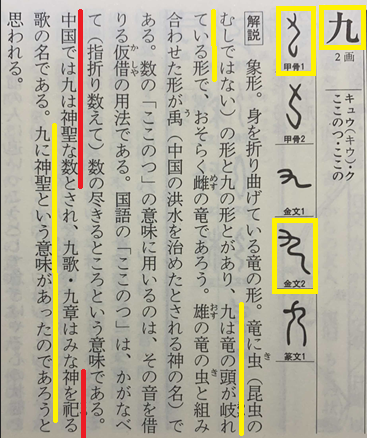 九
2画
キュウ(キウ)・ク
ここのつ・ここの
甲骨1
甲骨2
金文1
金文2
篆文1
解説 象形。身を折り曲げている竜の形。竜に虫(昆虫の
むしではない)の形と九の形とがあり、九は竜の頭が岐れ
ている形で、おそらく雌の竜であろう。雄の竜の虫と組み
合わせた形が禹(中国の洪水を治めたとされる神の名)で
ある。数の「ここのつ」の意味に用いるのは、その音を借
りる仮借の用法である。国語の「ここのつ」は、かがなべ
て(指折り数えて)数の尽きるところという意味である。
中国では九は神聖な数とされ、九歌・九章はみな神を祀る
歌の名である。九に神聖という意味があったのであろうと
思われる。